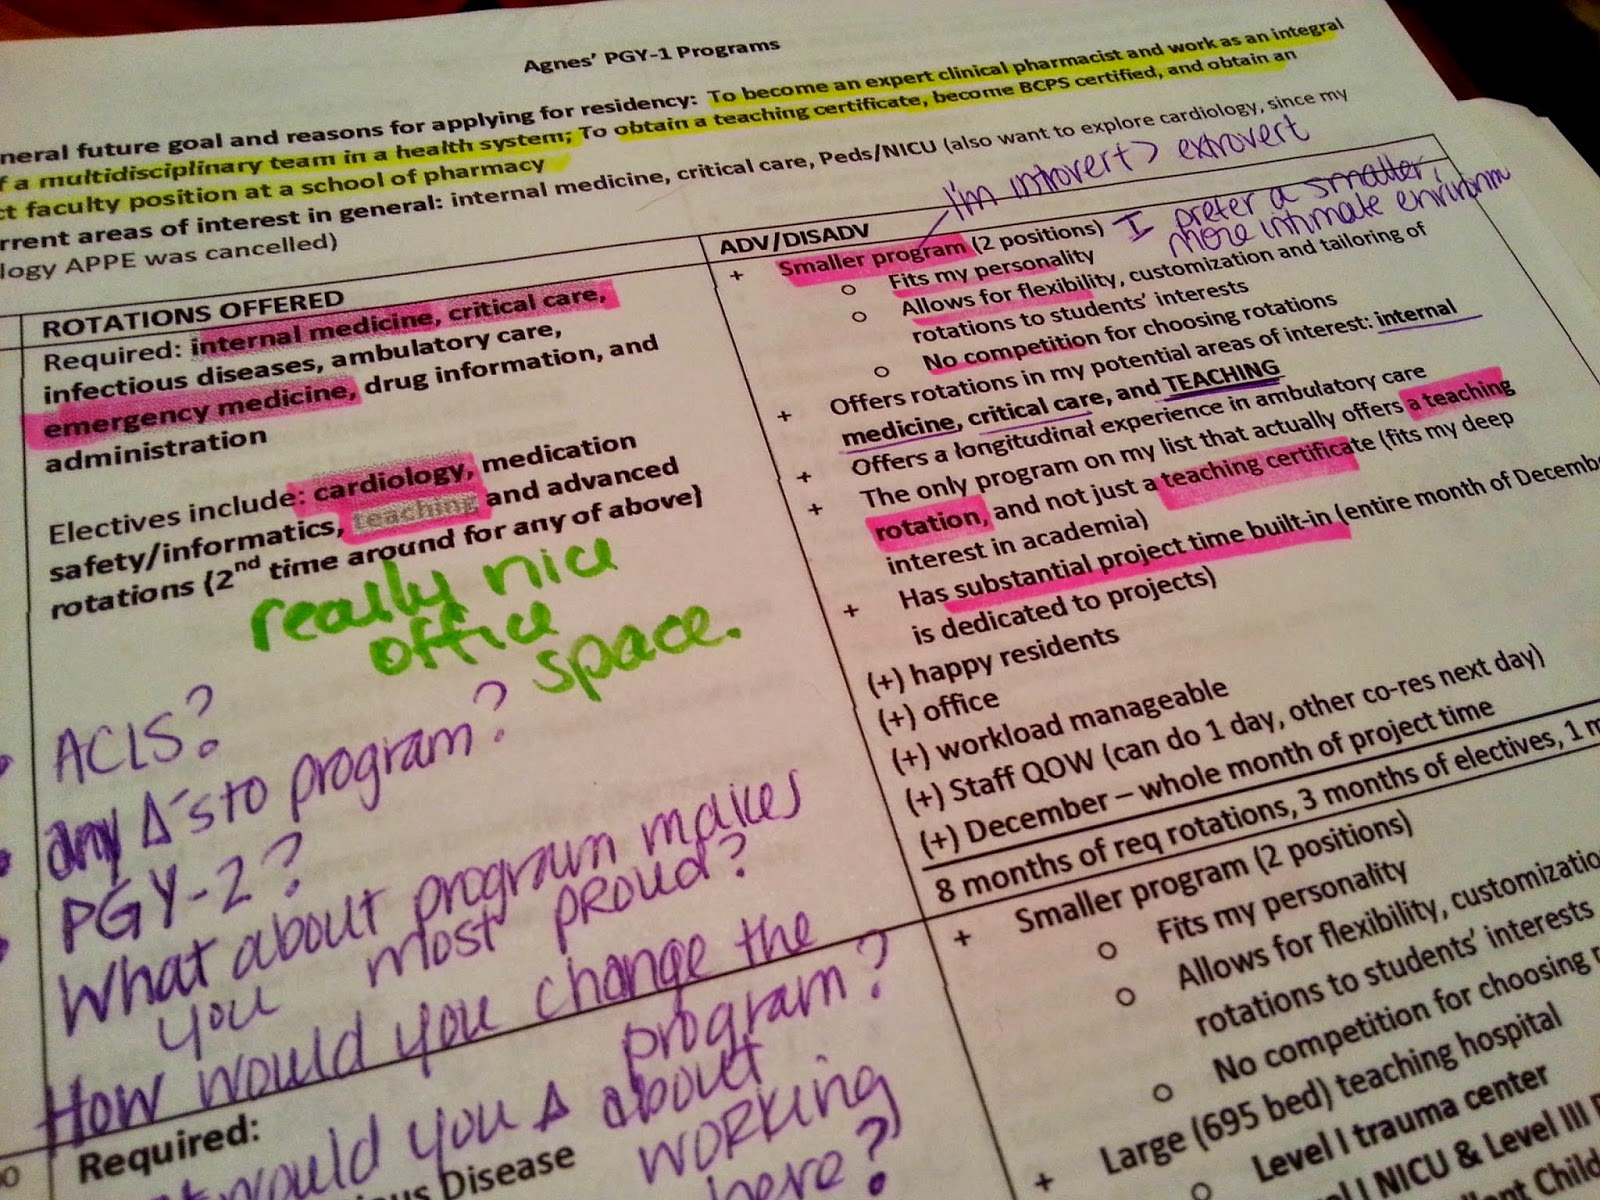 Agnes' PGY-1 Programs
neral future goal and reasons for applying for residency: To become an expert clinical pharmacist and work as an integral
f a multidisciplinary team in a health system; To obtain a teaching certificate, become BCPS certified, and obtain an
ct faculty position at a school of pharmacy
rrent areas of interest in general: internal medicine, critical care, Peds/NICU (also want to explore cardiology, since my
logy APPE was cancelled)
I'm introvert > extrovert
I prefer a smaller,
more intimate environm
ROTATIONS OFFERED
Required: internal medicine, critical care,
infectious diseases, ambulatory care,
emergency medicine, drug information, and
administration
Electives include: cardiology, medication
safety/informatics, teaching and advanced
rotations (2nd time around for any of above)
really nice
office
space.
ACLS?
any Δ's to program?
PGY-2?
What about program makes
you most proud?
How would you change the
program?
would you Δ about
working
here?
ADV/DISADV
+ Smaller program (2 positions)
o Fits my personality
o Allows for flexibility, customization and tailoring of
rotations to students' interests
o No competition for choosing rotations
+ Offers rotations in my potential areas of interest: internal
medicine, critical care, and TEACHING
+ Offers a longitudinal experience in ambulatory care
+ The only program on my list that actually offers a teaching
rotation, and not just a teaching certificate (fits my deep
interest in academia)
+ Has substantial project time built-in (entire month of Decembe
is dedicated to projects)
(+) happy residents
(+) office
(+) workload manageable
(+) Staff QOW (can do 1 day, other co-res next day)
(+) December – whole month of project time
8 months of req rotations, 3 months of electives, 1 m
Required:
Disease
+ Smaller program (2 positions)
o Fits my personality
o Allows for flexibility, customizatio
rotations to students' interests
o No competition for choosing r
+ Large (695 bed) teaching hospital
o Level I trauma center
NICU & Level III